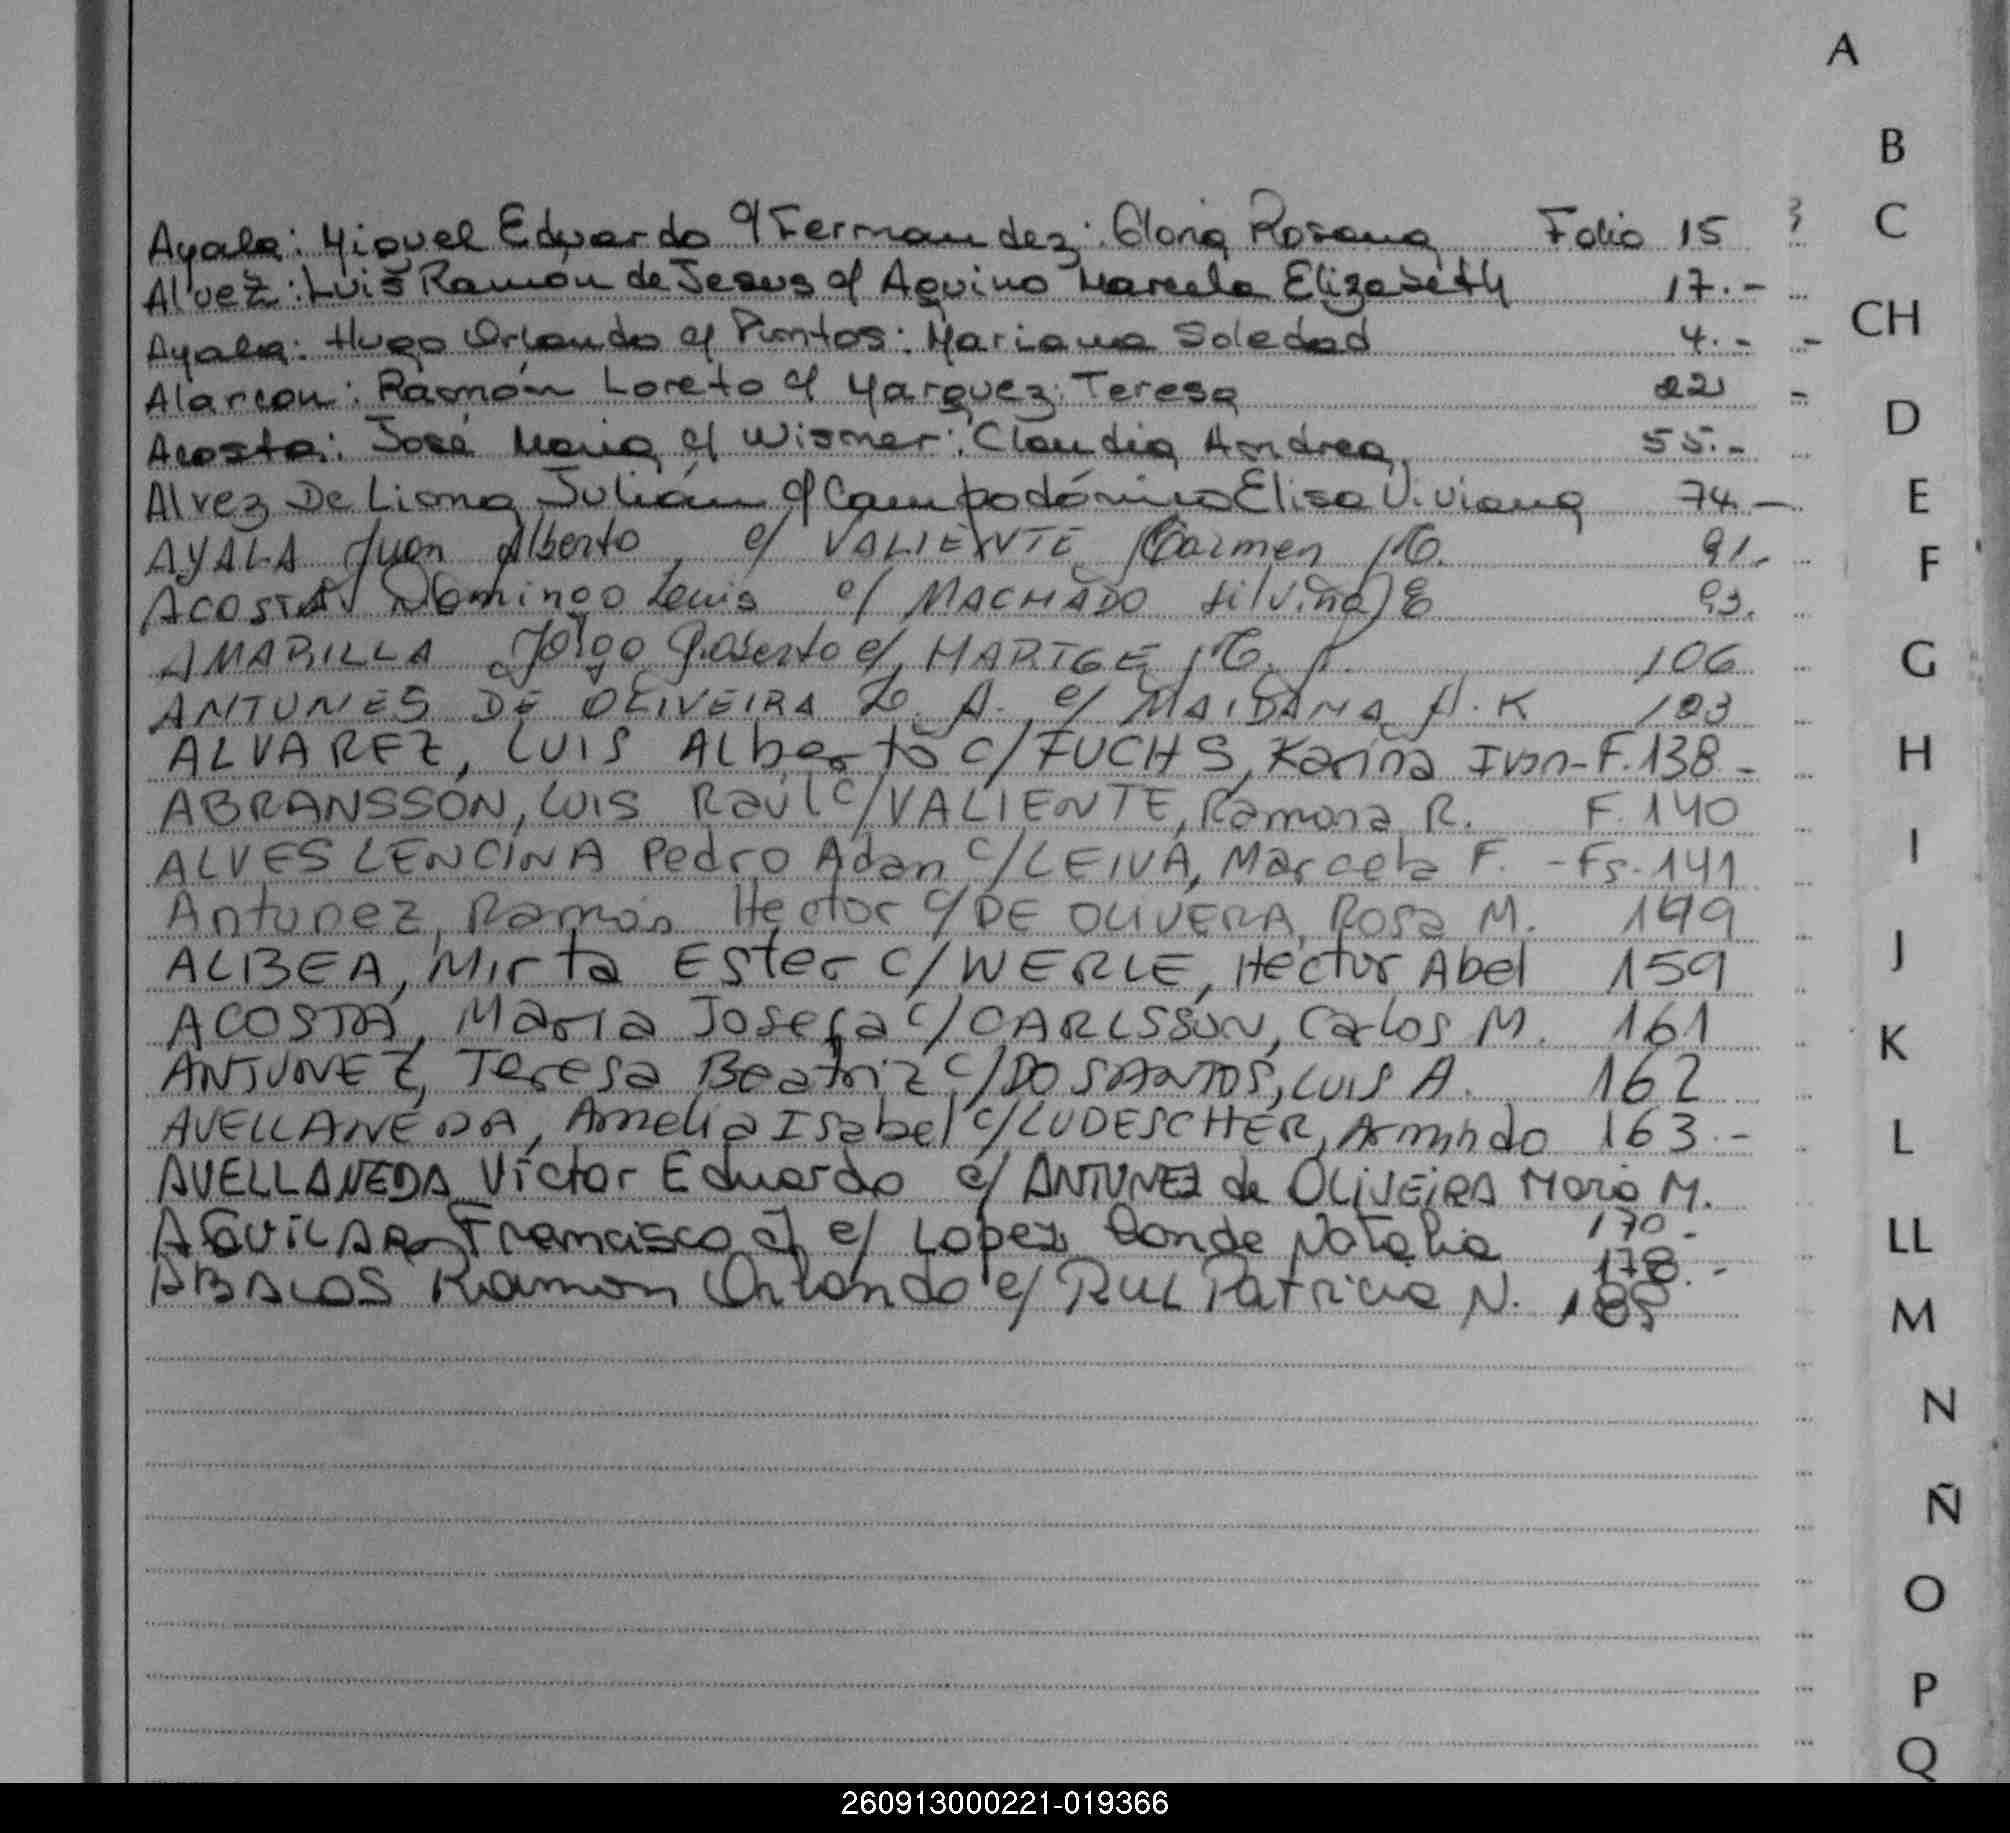 A
B
C
CH
D
E
F
G
H
I
J
K
L
LL
M
N
Ñ
O
P
Q
Ayala: Miguel Eduardo c/ Fernandez: Gloria Rosana Folio 15
Alvez: Luis Ramón de Jesus c/ Aquino Marcela Elizabeth 17.-
Ayala: Hugo Orlando c/ Puntos: Mariana Soledad 4.-
Alarcon: Ramón Loreto c/ Marquez: Teresa 22
Acosta: José Maria c/ Wismer: Claudia Andrea 55.-
Alvez De Lima Julián c/ Campodónico Elisa Viviana 74.-
AYALA Juan Alberto c/ VALIENTE Carmen M. 91.
ACOSTA Domingo Luis c/ MACHADO Silvina E 93.
AMARILLA Jorge Roberto c/ M. 106
ANTUNES DE OLIVEIRA A. c/ MAIDANA A. K 123
ALVAREZ, LUIS ALberto c/ FUCHS, Karina Ivon - F. 138 -
ABRANSSON, LUIS Raúl c/ VALIENTE, Ramona R. F. 140
ALVES LENCINA Pedro Adan c/ LEIVA, Marcela F. - Fs. 141
Antunez, Ramón Hector c/ DE OLIVERA, Rosa M. 149
ALIBEA, Mirta Ester c/ WERLE, Hector Abel 159
ACOSTA, Maria Josefa c/ CARLSSON, Carlos M. 161
ANTUNEZ, Teresa Beatriz c/ DO SANTOS, LUIS A. 162
AVELLANEDA, Amelia Isabel c/ LUDESCHER, Armindo 163.-
AVELLANEDA Víctor Eduardo c/ ANTUNEZ de OLIVEIRA Maria M.
170.-
AGUILAR Francisco J c/ Lopez Conde Natalia
178.-
ABALOS Ramon Orlando c/ RUL Patricia N. 185
260913000221-019366